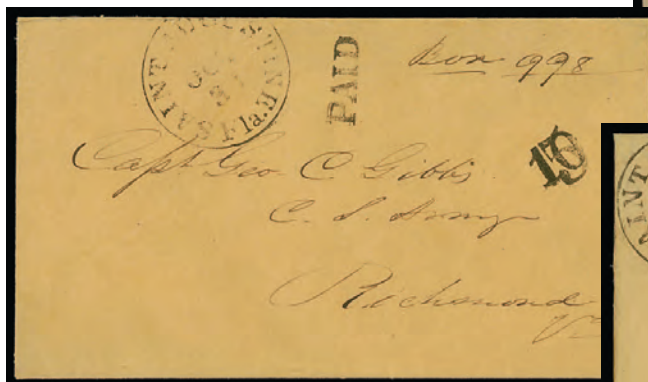 SAINT AUGUSTINE Fla.
PAID
Box 998
10
Capt Geo. C Gibbs
C. S. Army
Richmond
Va
AINT